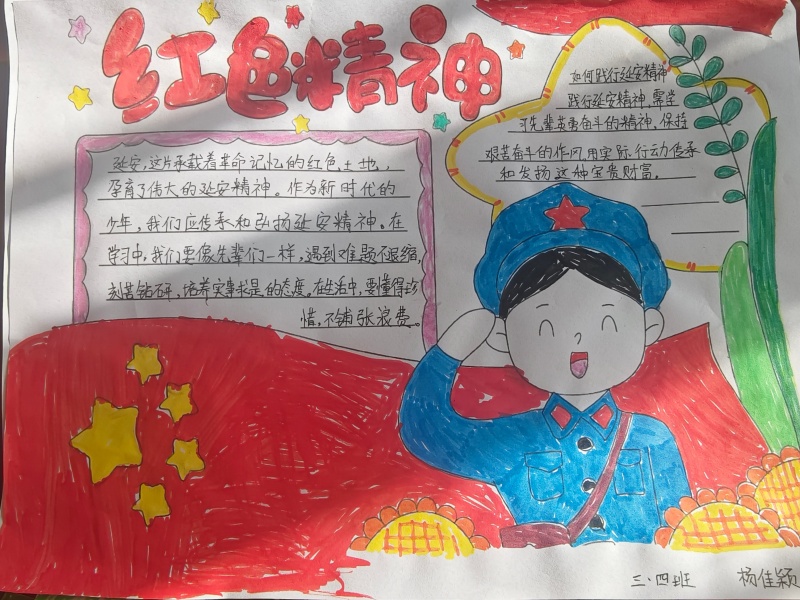 红色精神
延安,这片承载着革命记忆的红色土地,
孕育了伟大的延安精神。作为新时代的
少年,我们应传承和弘扬延安精神。在
学习中,我们要像先辈们一样,遇到难题不退缩,
刻苦钻研,培养实事求是的态度。在生活中,要懂得珍
惜,不铺张浪费。
如何践行延安精神
践行延安精神,需学
习先辈英勇奋斗的精神,保持
艰苦奋斗的作风,用实际行动传承
和发扬这种宝贵财富。
三·四班 杨佳颖